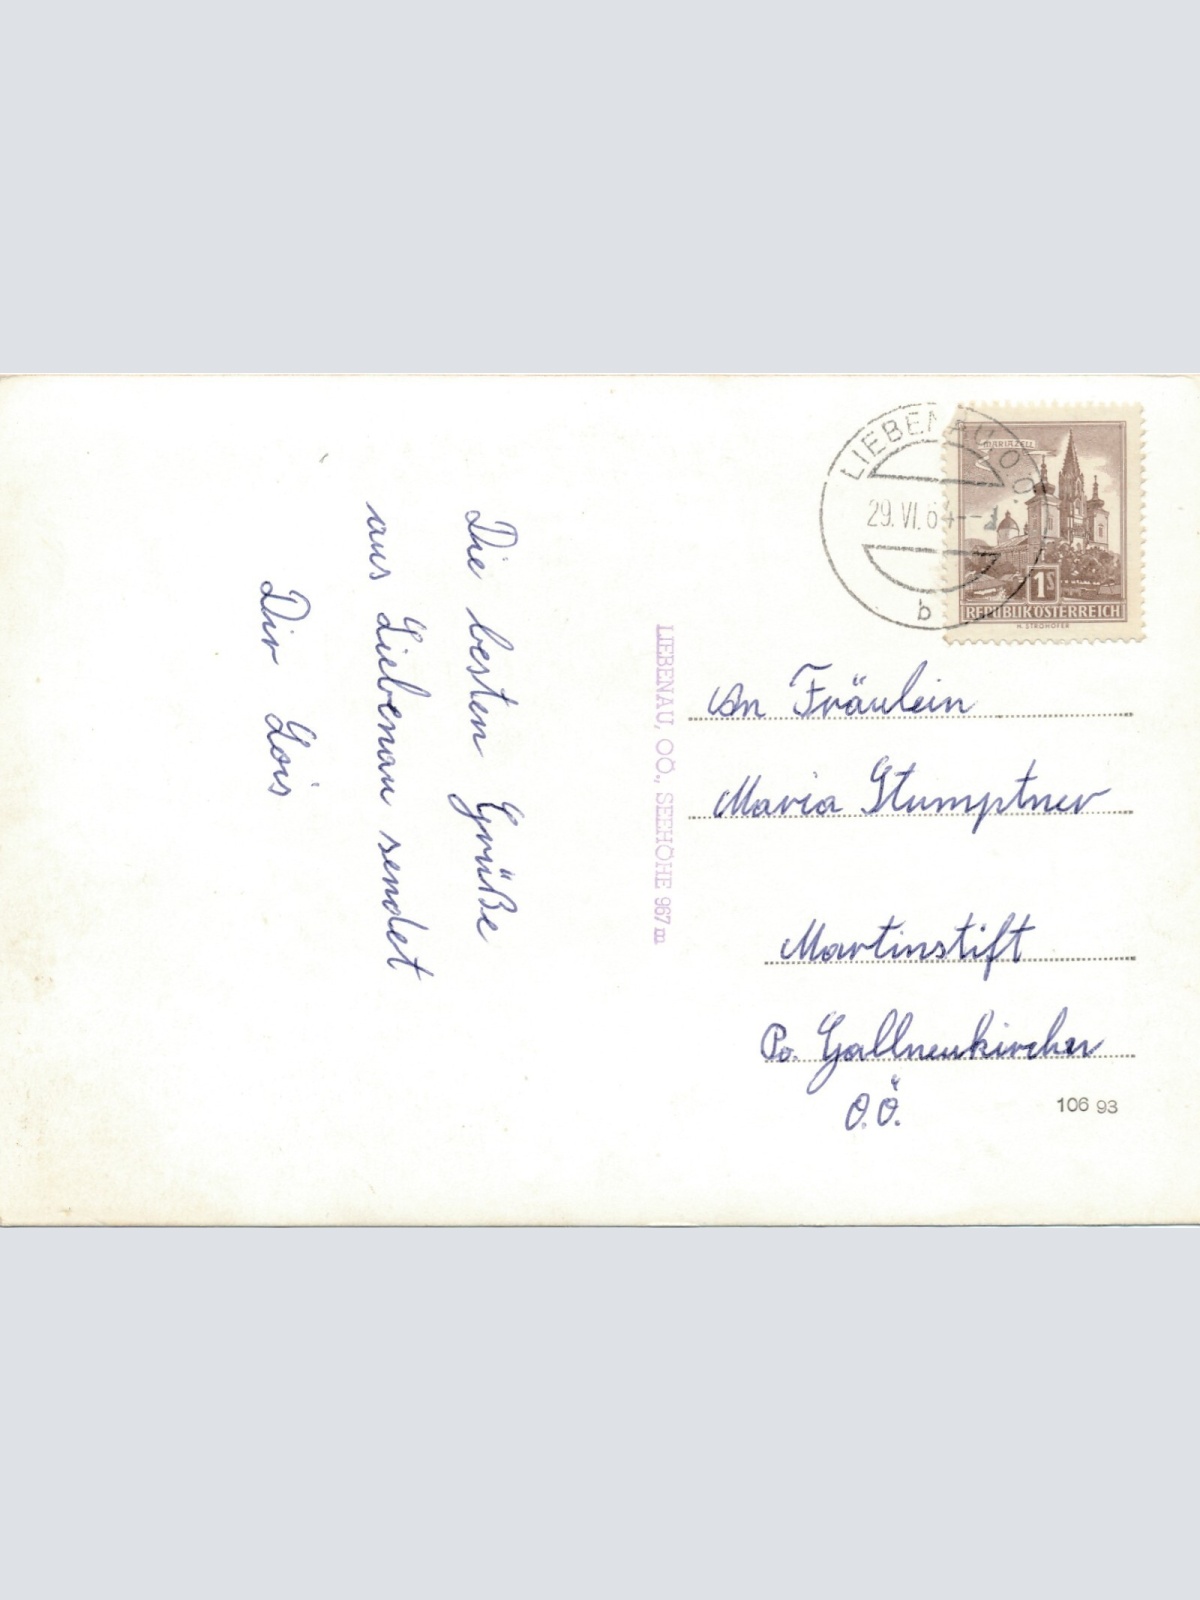 Die besten Grüße
aus Liebenau sendet
Dir Lois
LIEBENAU, OÖ., SEEHÖHE 967 m
LIEBENAU, O.Ö.
29. VI. 64
b
MARIAZELL
1S
REPUBLIK ÖSTERREICH
H. STROHOFER
An Fräulein
Maria Stumptner
Martinstift
Po. Gallneukirchen
O.Ö.
106 93